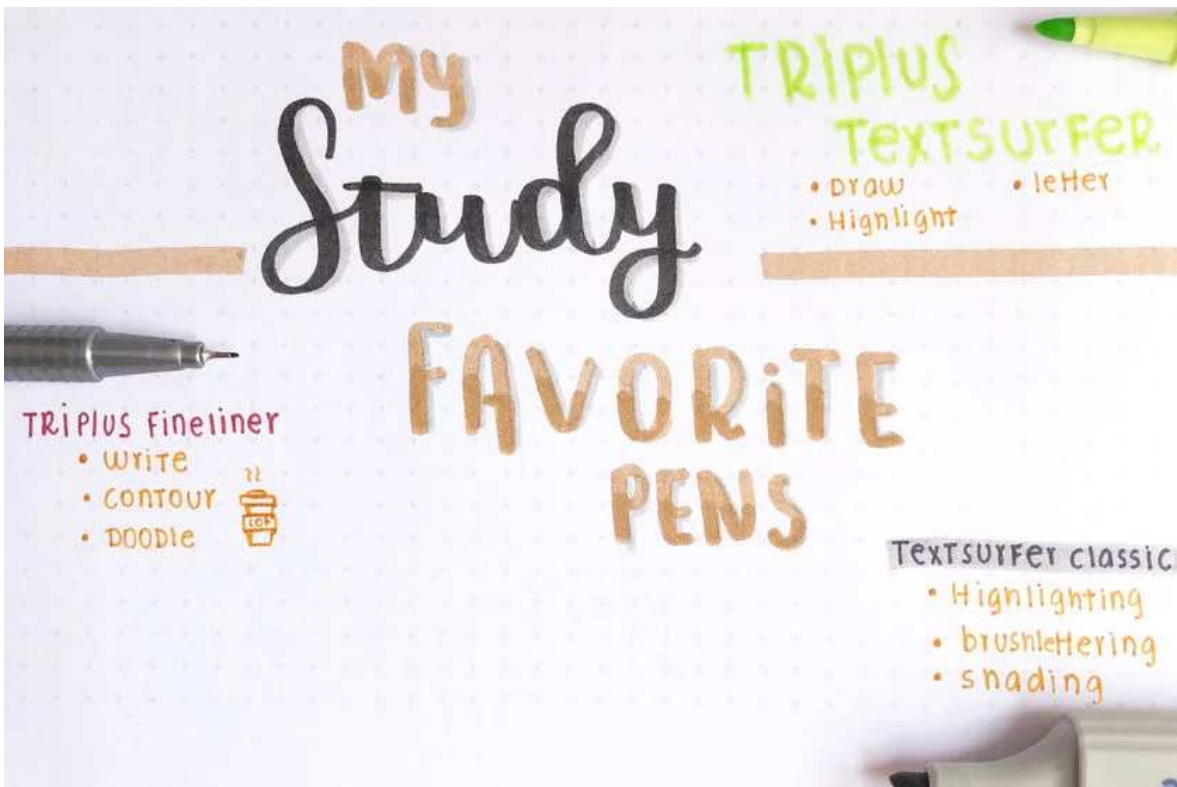 My
Study
FAVORiTE
PENS
TRiPlUS
TexTSUrFer
• Draw
• letter
• Highlight
TRiPlUS Fineliner
• Write
• Contour
• DOODle
COF
TexTSUrFer classic
• Highlighting
• brushlettering
• shading